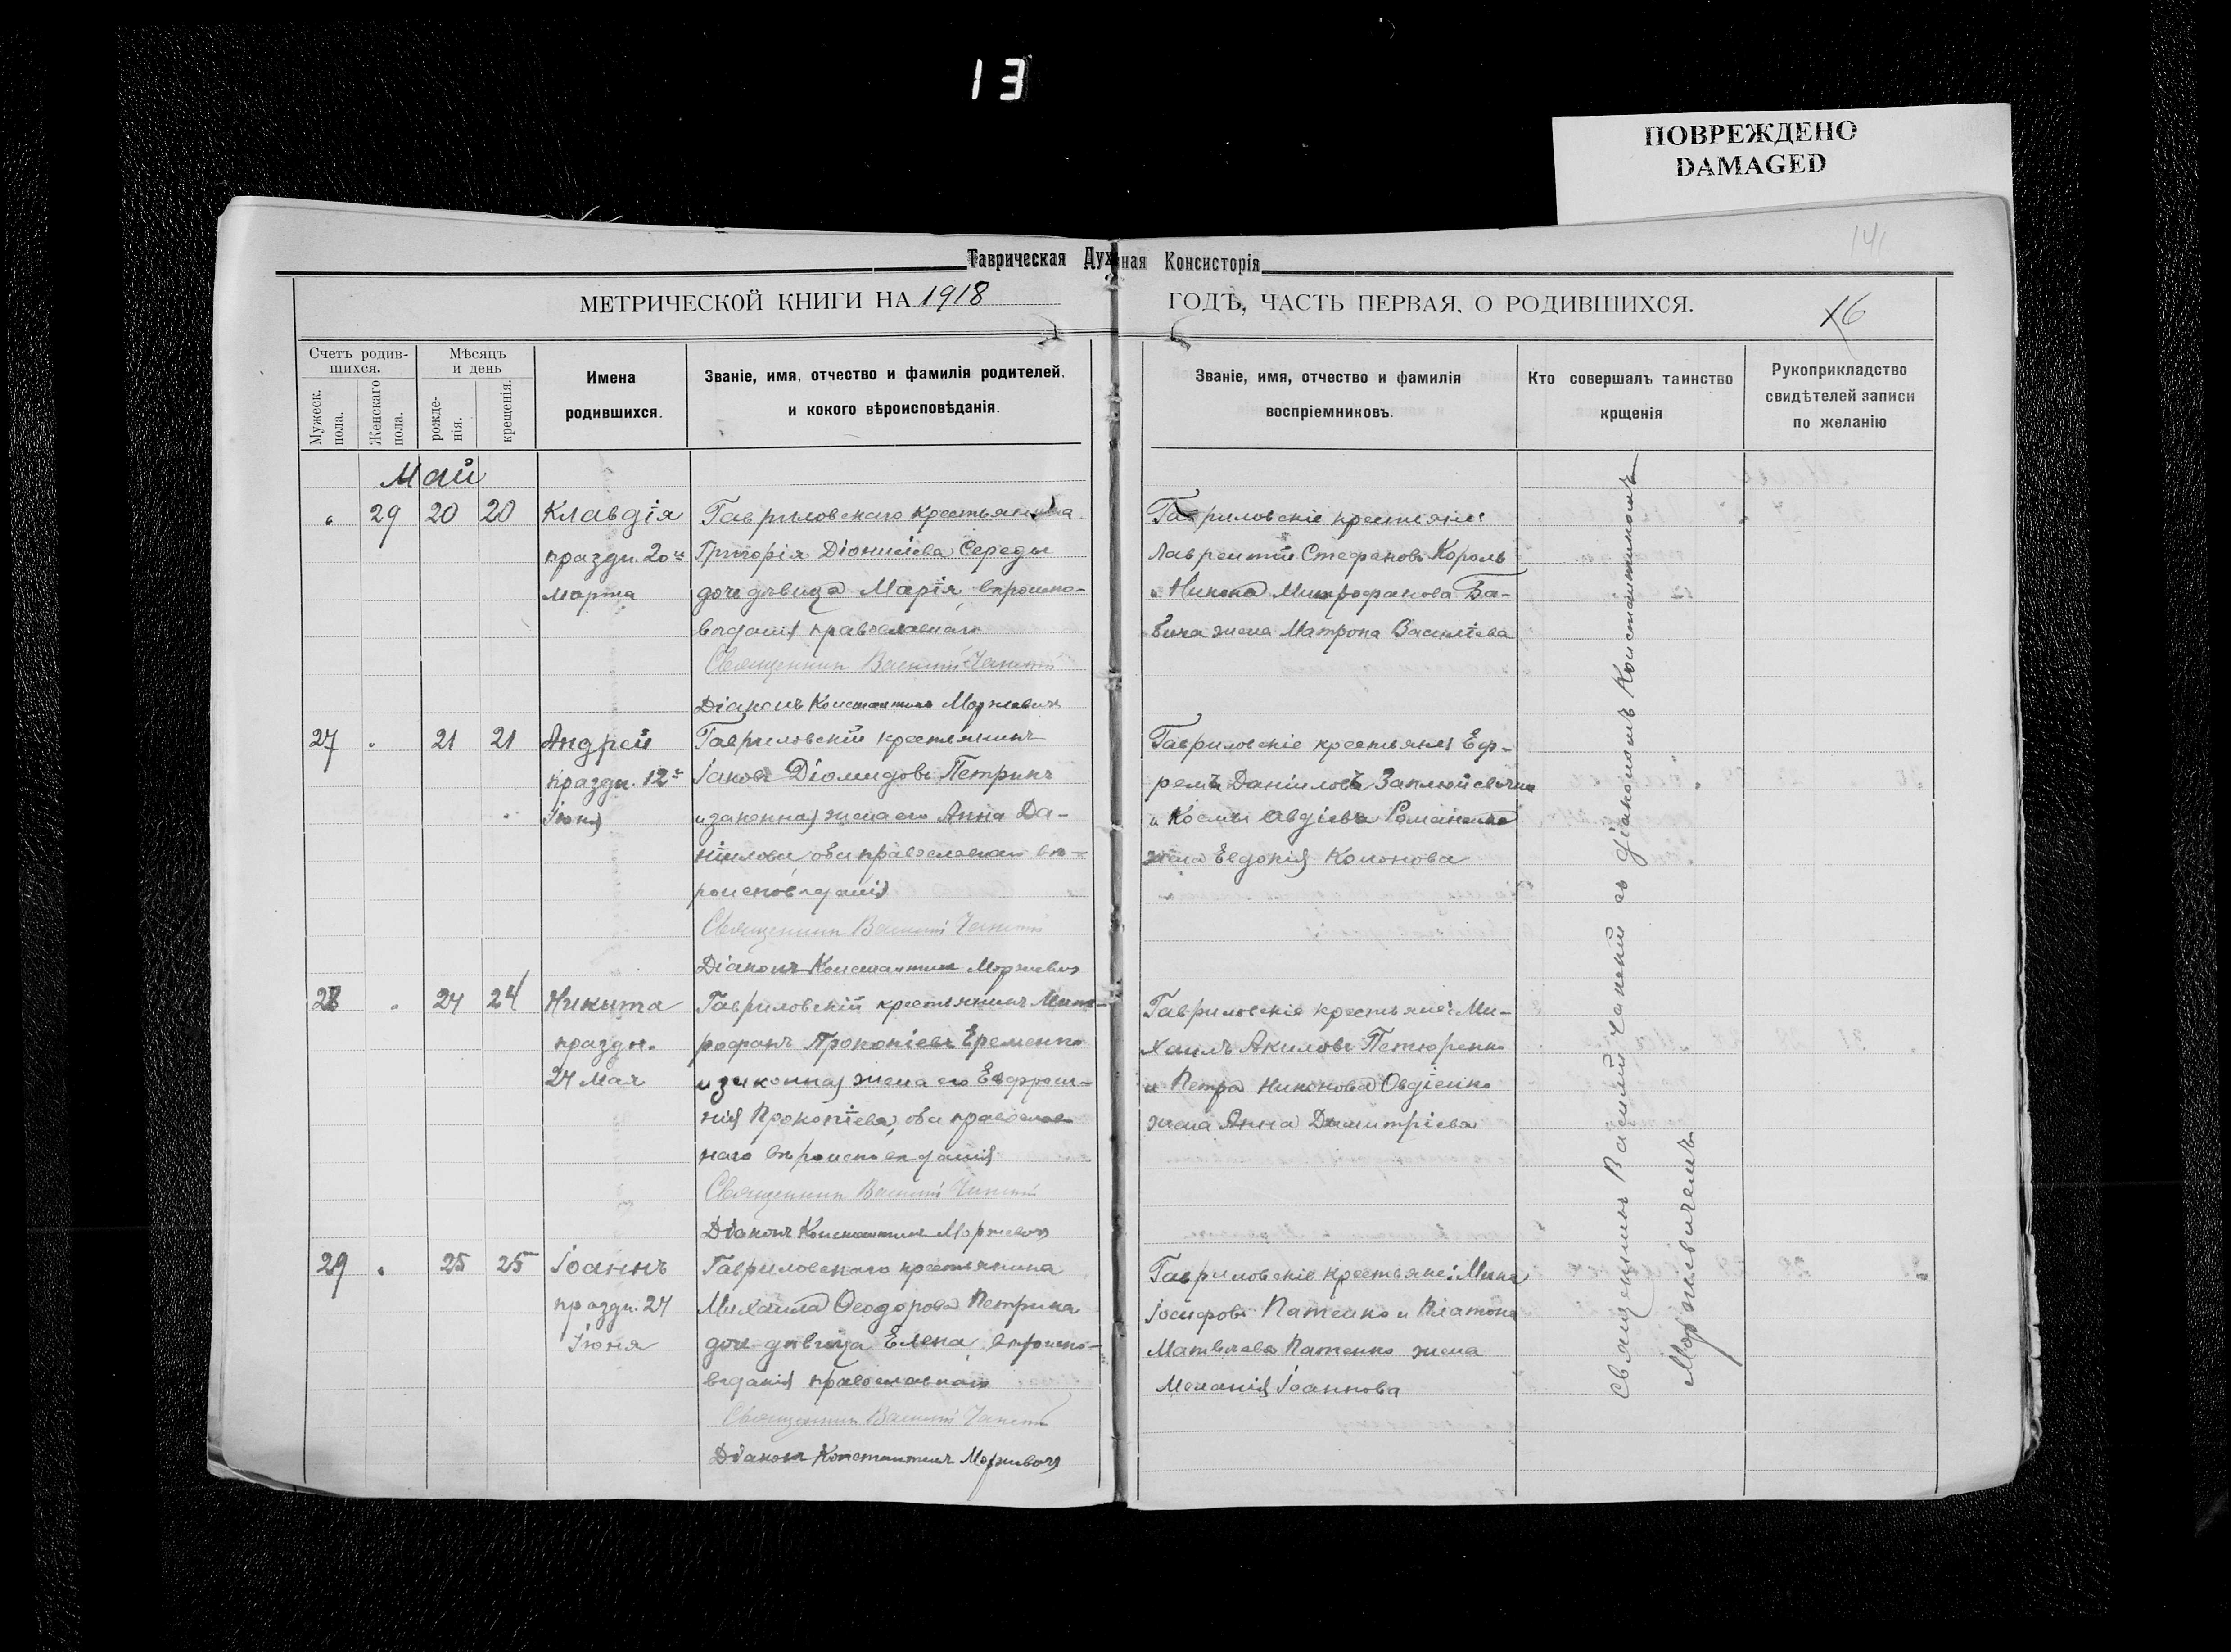 13
ПОВРЕЖДЕНО
DAMAGED
141
Таврическая Духная Консисторія
МЕТРИЧЕСКОЙ КНИГИ НА 1918
ГОДЪ, ЧАСТЬ ПЕРВАЯ, О РОДИВШИХСЯ.
16
Счетъ родив-
шихся.
Мужеск.
пола.
Женскаго
пола.
Мѣсяцъ
и день
рожде-
нія.
крещенія.
Имена
родившихся.
Званіе, имя, отчество и фамилія родителей,
и кокого вѣроисповѣданія.
Званіе, имя, отчество и фамилія
воспріемниковъ.
Кто совершалъ таинство
крщенія
Рукоприкладство
свидѣтелей записи
по желанію
Май
29 20 20 Клавдія
праздн. 20го
марта
Гавриловскаго крестьянина
Григорія Діонисіева Середы
дочь дѣвица Марія, вѣроиспо-
вѣданія православнаго
Священникъ Василій
Діаконъ Константинъ Моржевичъ
Гавриловскіе крестьяне:
Лаврентій Стефановъ Король
и Никона Митрофанова Ба-
бича жена Матрона Василіева
27 21 21 Андрей
праздн. 12го
Іюня
Гавриловскій крестьянинъ
Іаковъ Діомидовъ Петринъ
и законная жена его Анна Да-
ніилова, оба православнаго вѣ-
роисповѣданія
Священникъ Василій
Діаконъ Константинъ Моржевичъ
Гавриловскіе крестьяне: Еф-
ремъ Даніиловъ
и Космы Авдіева Романенко
жена Евдокія Кононова
28 24 24 Никита
праздн.
24 Мая
Гавриловскій крестьянинъ Мит-
рофанъ Прокопіевъ Еременко
и законная жена его Евфроси-
нія Прокопіева, оба православ-
наго вѣроисповѣданія
Священникъ Василій
Діаконъ Константинъ Моржевичъ
Гавриловскіе крестьяне: Ми-
хаилъ Акиловъ Петюренко
и Петра Никонова Овдіенко
жена Анна Димитріева
29 25 25 Іоаннъ
праздн. 24
Іюня
Гавриловскаго крестьянина
Михаила Ѳеодорова Петрина
дочь дѣвица Елена, вѣроиспо-
вѣданія православнаго
Священникъ Василій
Діаконъ Константинъ Моржевичъ
Гавриловскіе крестьяне: Мина
Іосифовъ Патенко и Платона
Матвѣева Патенко жена
Меланія Іоаннова
Священникъ Василій съ діакономъ Константиномъ
Моржевичемъ